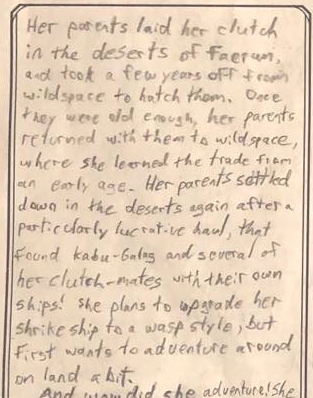 Her parents laid her clutch
in the deserts of Faerun,
and took a few years off from
wildspace to hatch them. Once
they were old enough, her parents
returned with them to wildspace,
where she learned the trade from
an early age. Her parents settled
down in the deserts again after a
particularly lucrative haul, that
found Kabu-Galag and several of
her clutch-mates with their own
ships! She plans to upgrade her
shrike ship to a wasp style, but
first wants to adventure around
on land a bit.
And wow did she adventure! She